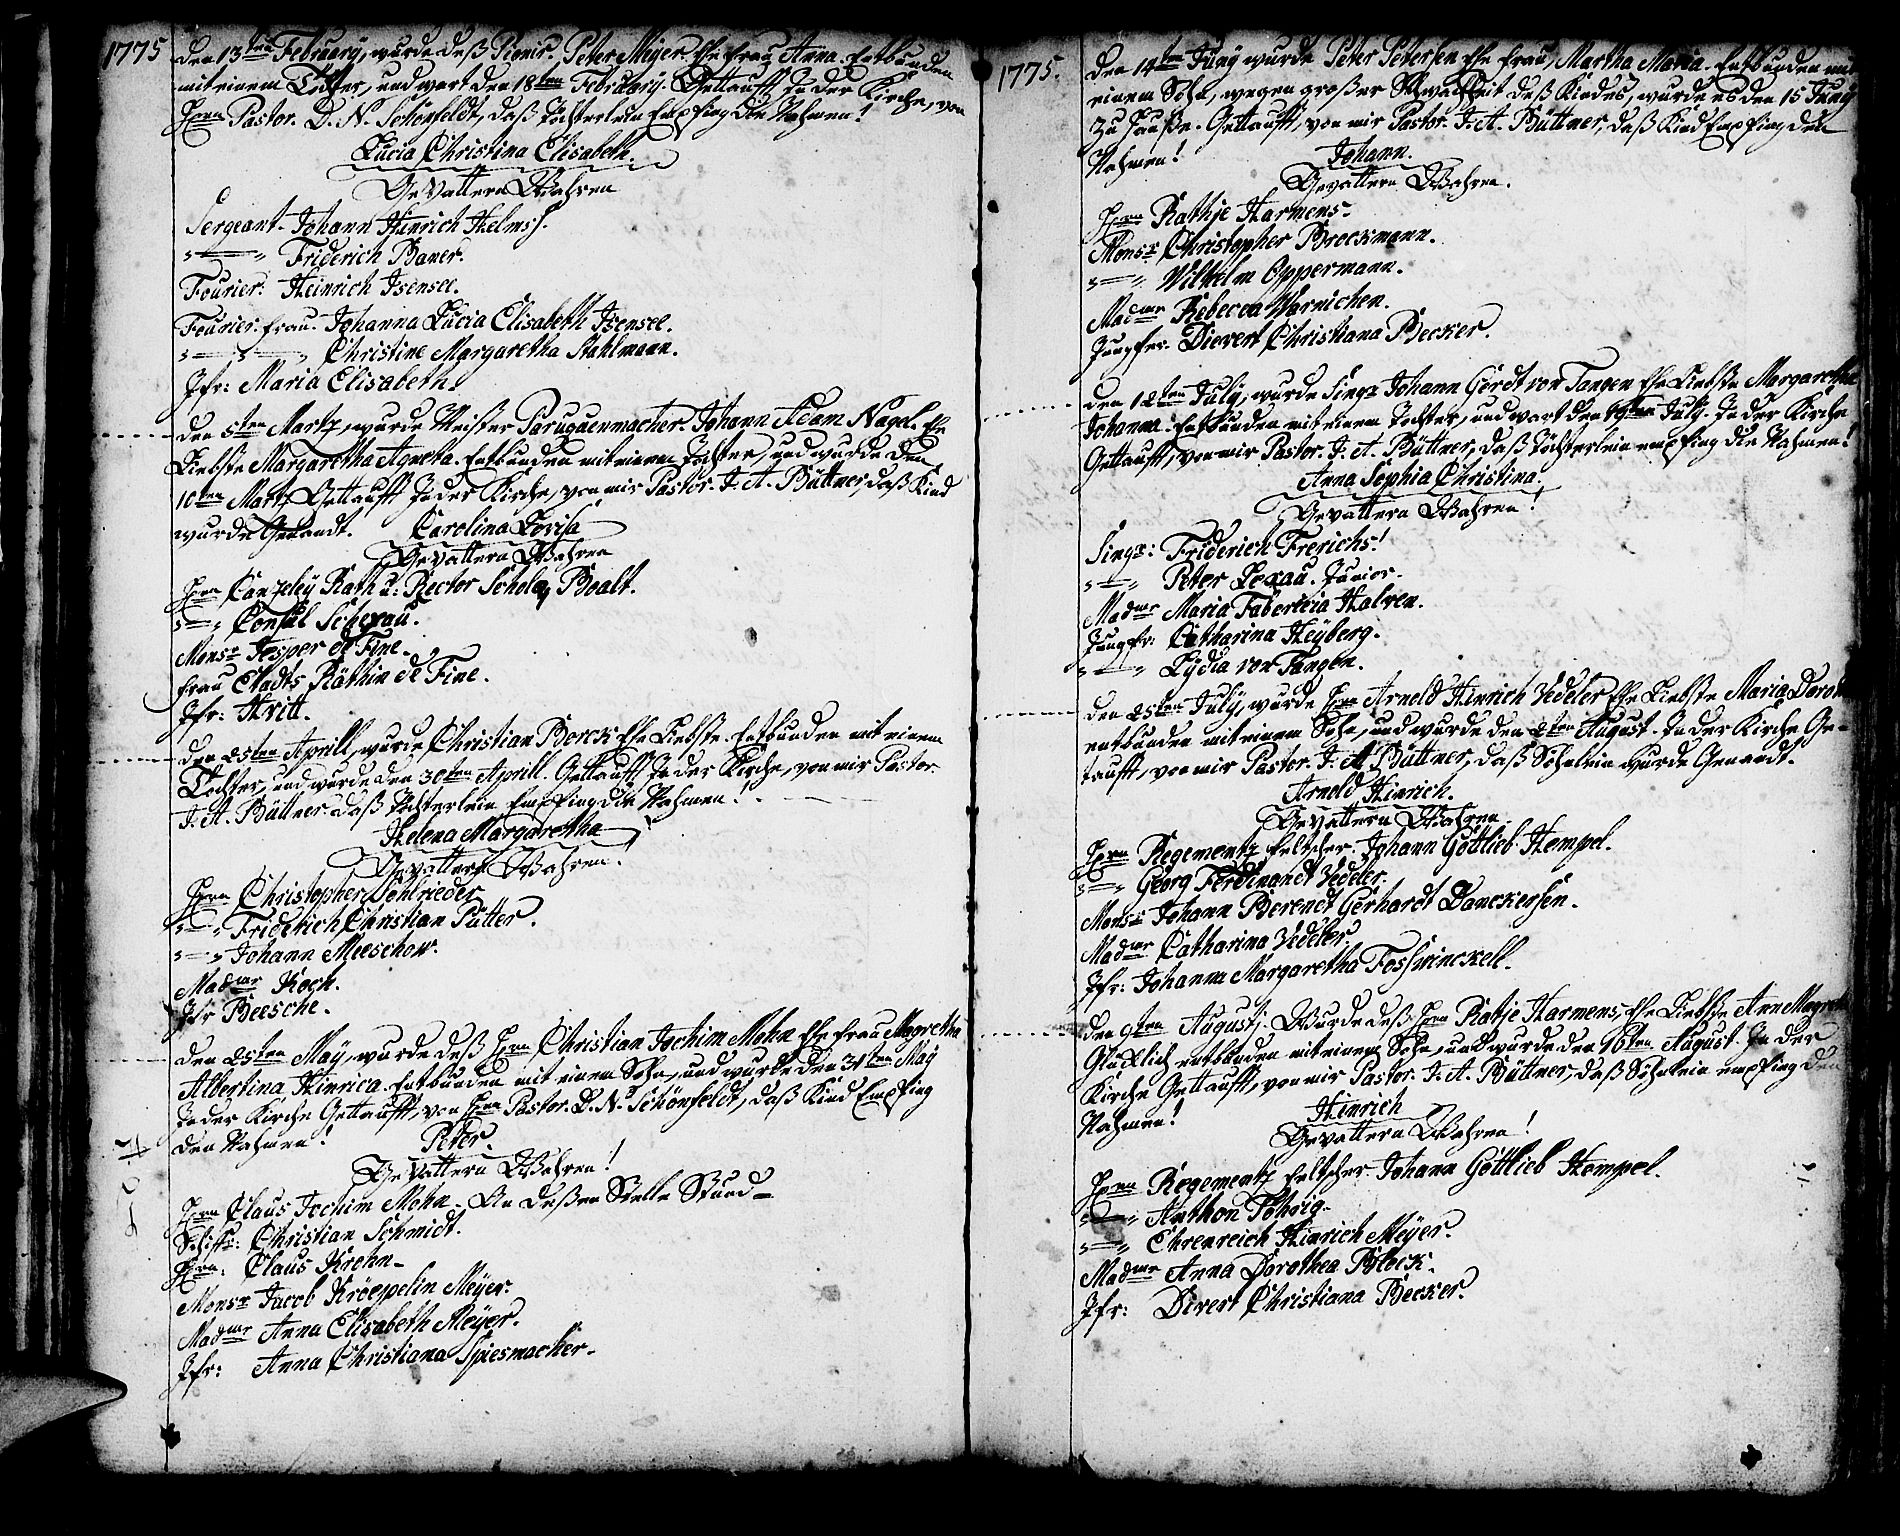 1775
den 13ten February, wurde deß Pionir. Peter Meyer Ehe frau Anna. Entbunden
mit einem Tochter, und wart den 18ten February. Gettaufft In der Kirche, von
Hern Pastor. D. N. Schönfeldt, daß Töchterlein Empfing die Nahmen!
Lucia Christina Elisabeth.
Gevattern Wahren
Sergeant. Johann Hinrich Helms.
Friderich Baner.
Fourier: Heinrich Isensee.
Fourier. frau. Johanna Lucia Elisabeth Isensee.
Christine Margaretha Stahlmann.
Jfr: Maria Elisabeth.
den 5ten Martz, wurde Meister Paruquenmacher Johann Adam Nagel. Ehe
Liebste Margaretha Agneta. Entbunden mit einem Tochter, und wurde den
10ten Martz Gettaufft In der Kirche, von mir Pastor. J. A. Büttner, daß Kind
wurde Genandt. Carolina Lovisa
Gevattern Wahren
Hern Canzeley Rath u: Rector Schola Boalt.
Consul Scherau.
Monsr Jesper de Fine.
frau Stadts Räthin de Fine.
Jfr: Hritt.
den 25ten Aprill, wurde Christian Borck Ehe Liebste. Entbunden mit einem
Tochter, und wurde den 30ten Aprill. Gettaufft In der Kirche, von mir Pastor.
J. A. Büttner. daß Töchterlein Empfing die Nahmen!
Helena Margaretha
Gevattern Wahren!
Hern Christopher Sehlrieder
Friderich Christian Pütter.
Johann Meeschow.
Madme Koch.
Jfr Beesche.
den 25ten May, wurde deß Hern Christian Jochim Mohn Ehe frau Magretha
Albertina Hinrica. Entbunden mit einem Sohn, und wurde den 31ten May
In der Kirche Gettaufft, von Hern Pastor. D. N. Schönfeldt, daß Kind Empfing
den Nahmen! Peter.
Gevattern Wahren!
Hern Claus Jochim Mohn. An deßen Stelle Stund
Schiffr: Christian Schmidt.
Hern: Claus Krehn
Monsr Jacob Kröeppelin Meyer.
Madme Anna Elisabeth Meyer.
Jfr: Anna Christiana Spiesmacher

1775.
den 14ten Juny wurde Peter Petersen Ehe frau, Martha Maria. Entbunden mit
einem Sohn, wegen großer Schwachheit deß Kindes, wurde es den 15 Juny
zu Hauße. Gettaufft, von mir Pastor. J. A. Büttner, daß Kind Empfing den
Nahmen! Johann.
Gevattern Wahren.
Hern Rathje Harmens
Monsr Christopher Brockmann.
Wilhelm Oppermann.
Madme Rebecca Wernichen.
Jungfer. Dievert Christiana Becker.
den 12ten July, wurde Singr Johann Gerdt von Tangen Ehe Liebste Margaretha
Johanna. Entbunden mit einem Tochter, und wart den 19ten July. In der Kirche
Gettaufft, von mir Pastor. J. A. Büttner, daß Töchterlein empfing die Nahmen!
Anna Sophia Christina.
Gevattern Wahren!
Singr: Friderich Frerichs!
Peter Lexau. Junior.
Madme Maria Fabericia Halven.
Jungfr: Catharina Heyberg.
Lydia von Tangen.
den 25ten July, wurde Hern Arneld Hinrich Vedeler Ehe Liebste Maria Doroth
entbunden mit einem Sohn, und wurde den 2ten August. In der Kirche Ge-
taufft, von mir Pastor. J. A. Büttner, daß Söhnlein wurde Genandt.
Arneld Hinrich.
Gevattern Wahren
Hern Regementz feltscher. Johann Gottlieb Hempel.
Georg Ferdinandt Vedeler.
Monsr Johann Berendt Gerhardt Danckersen.
Madme Catharina Vedeler
Jfr: Johanna Margaretha Foswinckell.
den 9ten Augustj. Wurde deß Hern Ratje Harmens, Ehe Liebste Ann Magreta
Glücklich entbunden mit einem Sohn, und wurde den 16ten August. In der
Kirche Gettaufft, von mir Pastor. J. A. Büttner, daß Söhnlein empfing den
Nahmen! Hinrich
Gevattern Wahren!
Hern Regementz feltscher Johann Gottlieb Hempel.
Anthon Fohrig
Ehrenreich Hinrich Meyer.
Madme Anna Dorothea Block.
Jfr: Divert Christiana Becker.